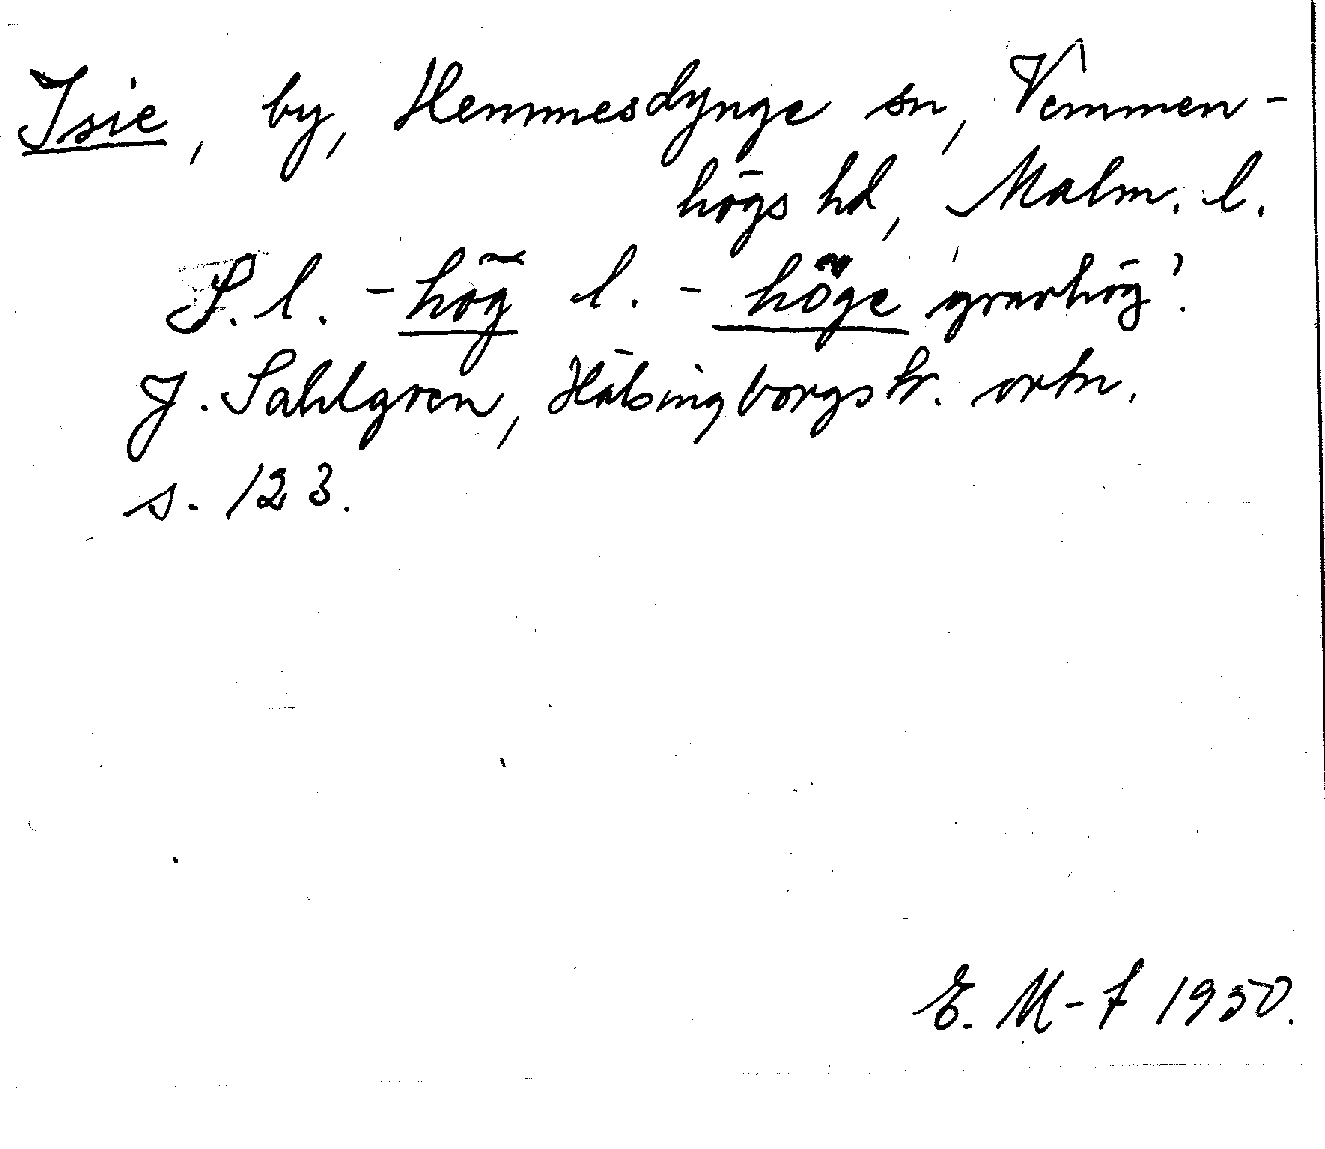 Isie, by, Hemmesdynge sn, Vemmen-
högs hd, Malm. l.
S. l. -hög l. -höge 'gravhög'.
J. Sahlgren, Hälsingborgstr. ortn.
s. 123.
E. M-f 1950.